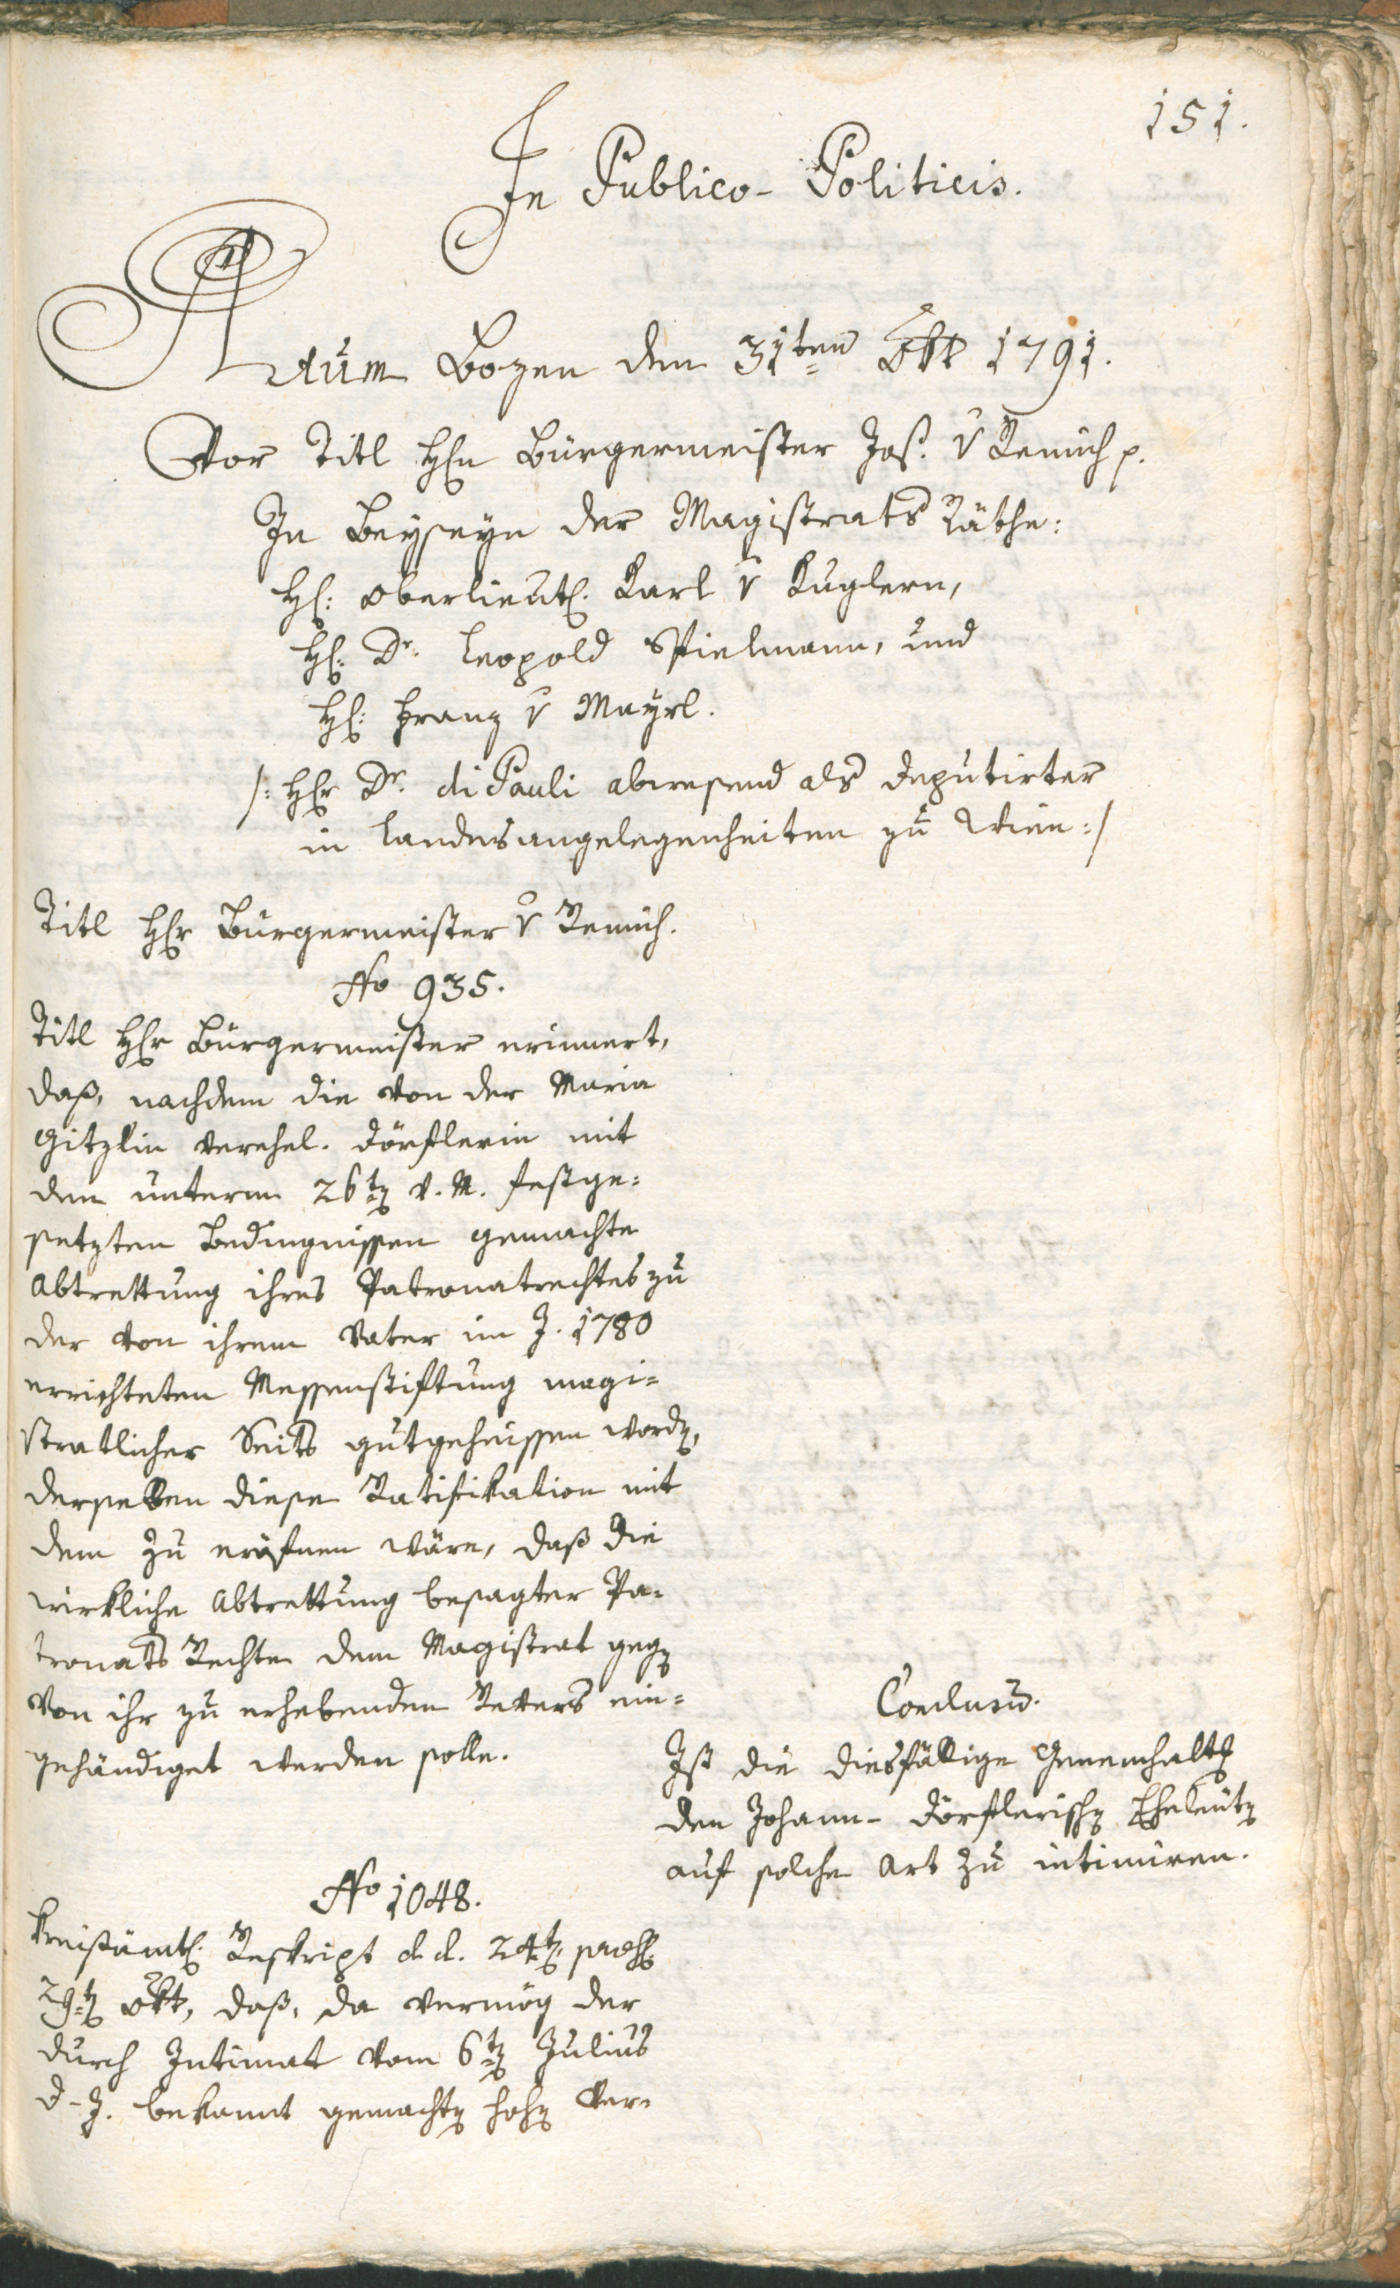 151.
In Publico-Politicis.
Actum Bozen den 31ten Okt 1791.
Vor Titl Hhn Bürgermeister Jos. v Remich p.
In Beyseyn der Magistrats Räthe:
Hh: Oberlieut. Karl v Kuglern,
Hh: Dr. Leopold Spielmann, und
Hh: Franz v Mayrl.
/: Hhr Dr. di Pauli abwesend als Deputirter
in Landesangelegenheiten zu Wien :/
Titl Hhr Bürgermeister v Remich.
No 935.
Titl Hhr Bürgermeister erinnert,
daß, nachdem die von der Maria
Gitzlin verehel. Dörflerin mit
den unterm 26ten v. M. festge=
setzten Bedingnissen gemachte
Abtrettung ihres Patronatrechtes zu
der von ihrem Vater im J. 1780
errichteten Messenstiftung magi=
stratlicher Seits gutgeheissen worden,
derselben diese Ratifikation mit
dem zu eröfnen wäre, daß die
wirkliche Abtrettung besagter Pa=
tronats Rechte dem Magistrat gegen
von ihr zu erhebenden Revers ein=
gehändiget werden solle.
Conclusum.
Ist die diesfällige Genemhaltung
den Johann- Dörflerischen Eheleuten
auf solche Art zu intimiren.
No 1048.
Kreisämtl. Reskript d. d. 24ten praes.
29ten Okt, daß, da vermög der
durch Intimat vom 6ten Julius
d. J. bekannt gemachten hohen Ver=